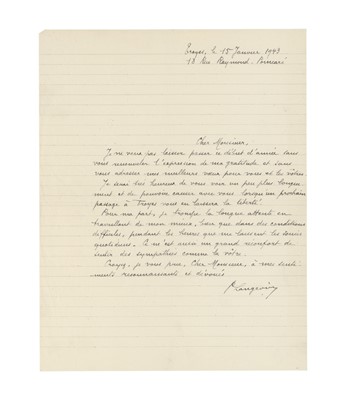 Troyes, le 15 Janvier 1943
18 Rue Raymond-Poincaré
Cher Monsieur,
Je ne veux pas laisser passer ce début d'année sans
vous renouveler l'expression de ma gratitude et sans
vous adresser mes meilleurs vœux pour vous et les vôtres
Je serai très heureux de vous voir un peu plus longue-
ment et de pouvoir causer avec vous lorsqu'un prochain
passage à Troyes vous en laissera la liberté.
Pour ma part, je trompe la longue attente en
travaillant de mon mieux, bien que dans des conditions
difficiles, pendant les heures que me laissent les soucis
quotidiens. Ce m'est aussi un grand réconfort de
sentir des sympathies comme la vôtre.
Croyez, je vous prie, Cher Monsieur, à mes senti-
ments reconnaissants et dévoués
P. Langevin